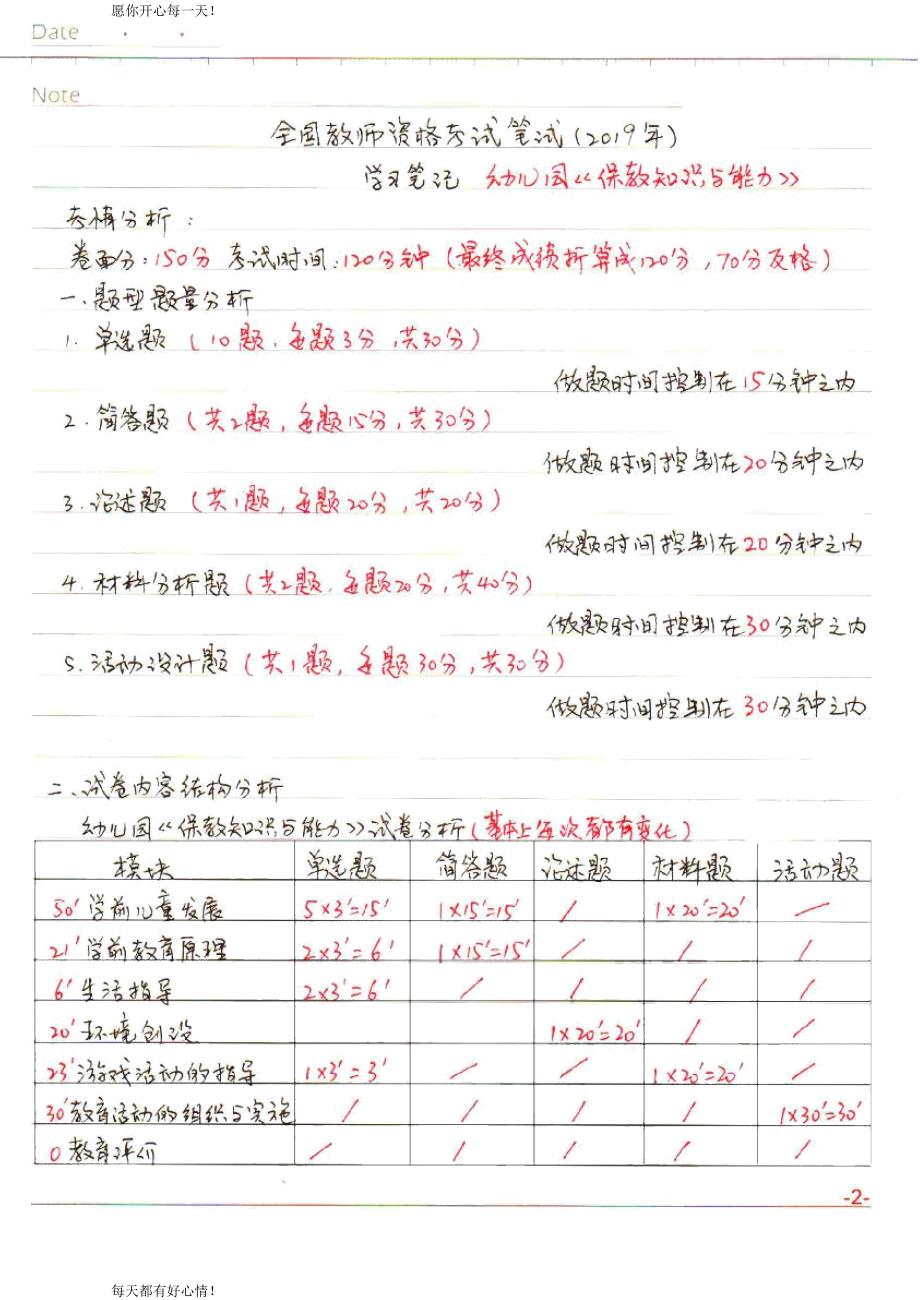 愿你开心每一天！
Date
Note
全国教师资格考试笔试(2019年)
学习笔记 幼儿园《保教知识与能力》
考情分析：
卷面分：150分 考试时间：120分钟（最终成绩折算成120分，70分及格）
一、题型题量分析
1. 单选题（10题，每题3分，共30分）
做题时间控制在15分钟之内
2. 简答题（共2题，每题15分，共30分）
做题时间控制在20分钟之内
3. 论述题（共1题，每题20分，共20分）
做题时间控制在20分钟之内
4. 材料分析题（共2题，每题20分，共40分）
做题时间控制在30分钟之内
5. 活动设计题（共1题，每题30分，共30分）
做题时间控制在30分钟之内
二、试卷内容结构分析
幼儿园《保教知识与能力》试卷分析（基本上每次都有变化）
模块 单选题 简答题 论述题 材料题 活动题
50′学前儿童发展 5×3′=15′ 1×15′=15′ / 1×20′=20′ /
21′学前教育原理 2×3′=6′ 1×15′=15′ / / /
6′生活指导 2×3′=6′ / / / /
20′环境创设 1×20′=20′ / /
23′游戏活动的指导 1×3′=3′ / / 1×20′=20′ /
30′教育活动的组织与实施 / / / / 1×30′=30′
0 教育评价 / / / / /
-2-
每天都有好心情！